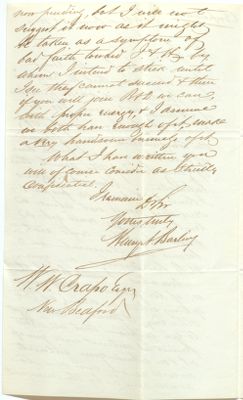 now pending, but I will not
suggest it now as it might
be taken as a symptom of
bad faith toward J & H, by
whom I intend to stick until
I see they cannot succeed & then
if you will join P&D we can,
with proper energy, & I assume
we both have enough of it, make
a very handsome business of it.
What I have written you
will of course consider as strictly
Confidential.
I remain D Sir
Yours truly
Henry A Barling
W. W. Crapo Esq
New Bedford